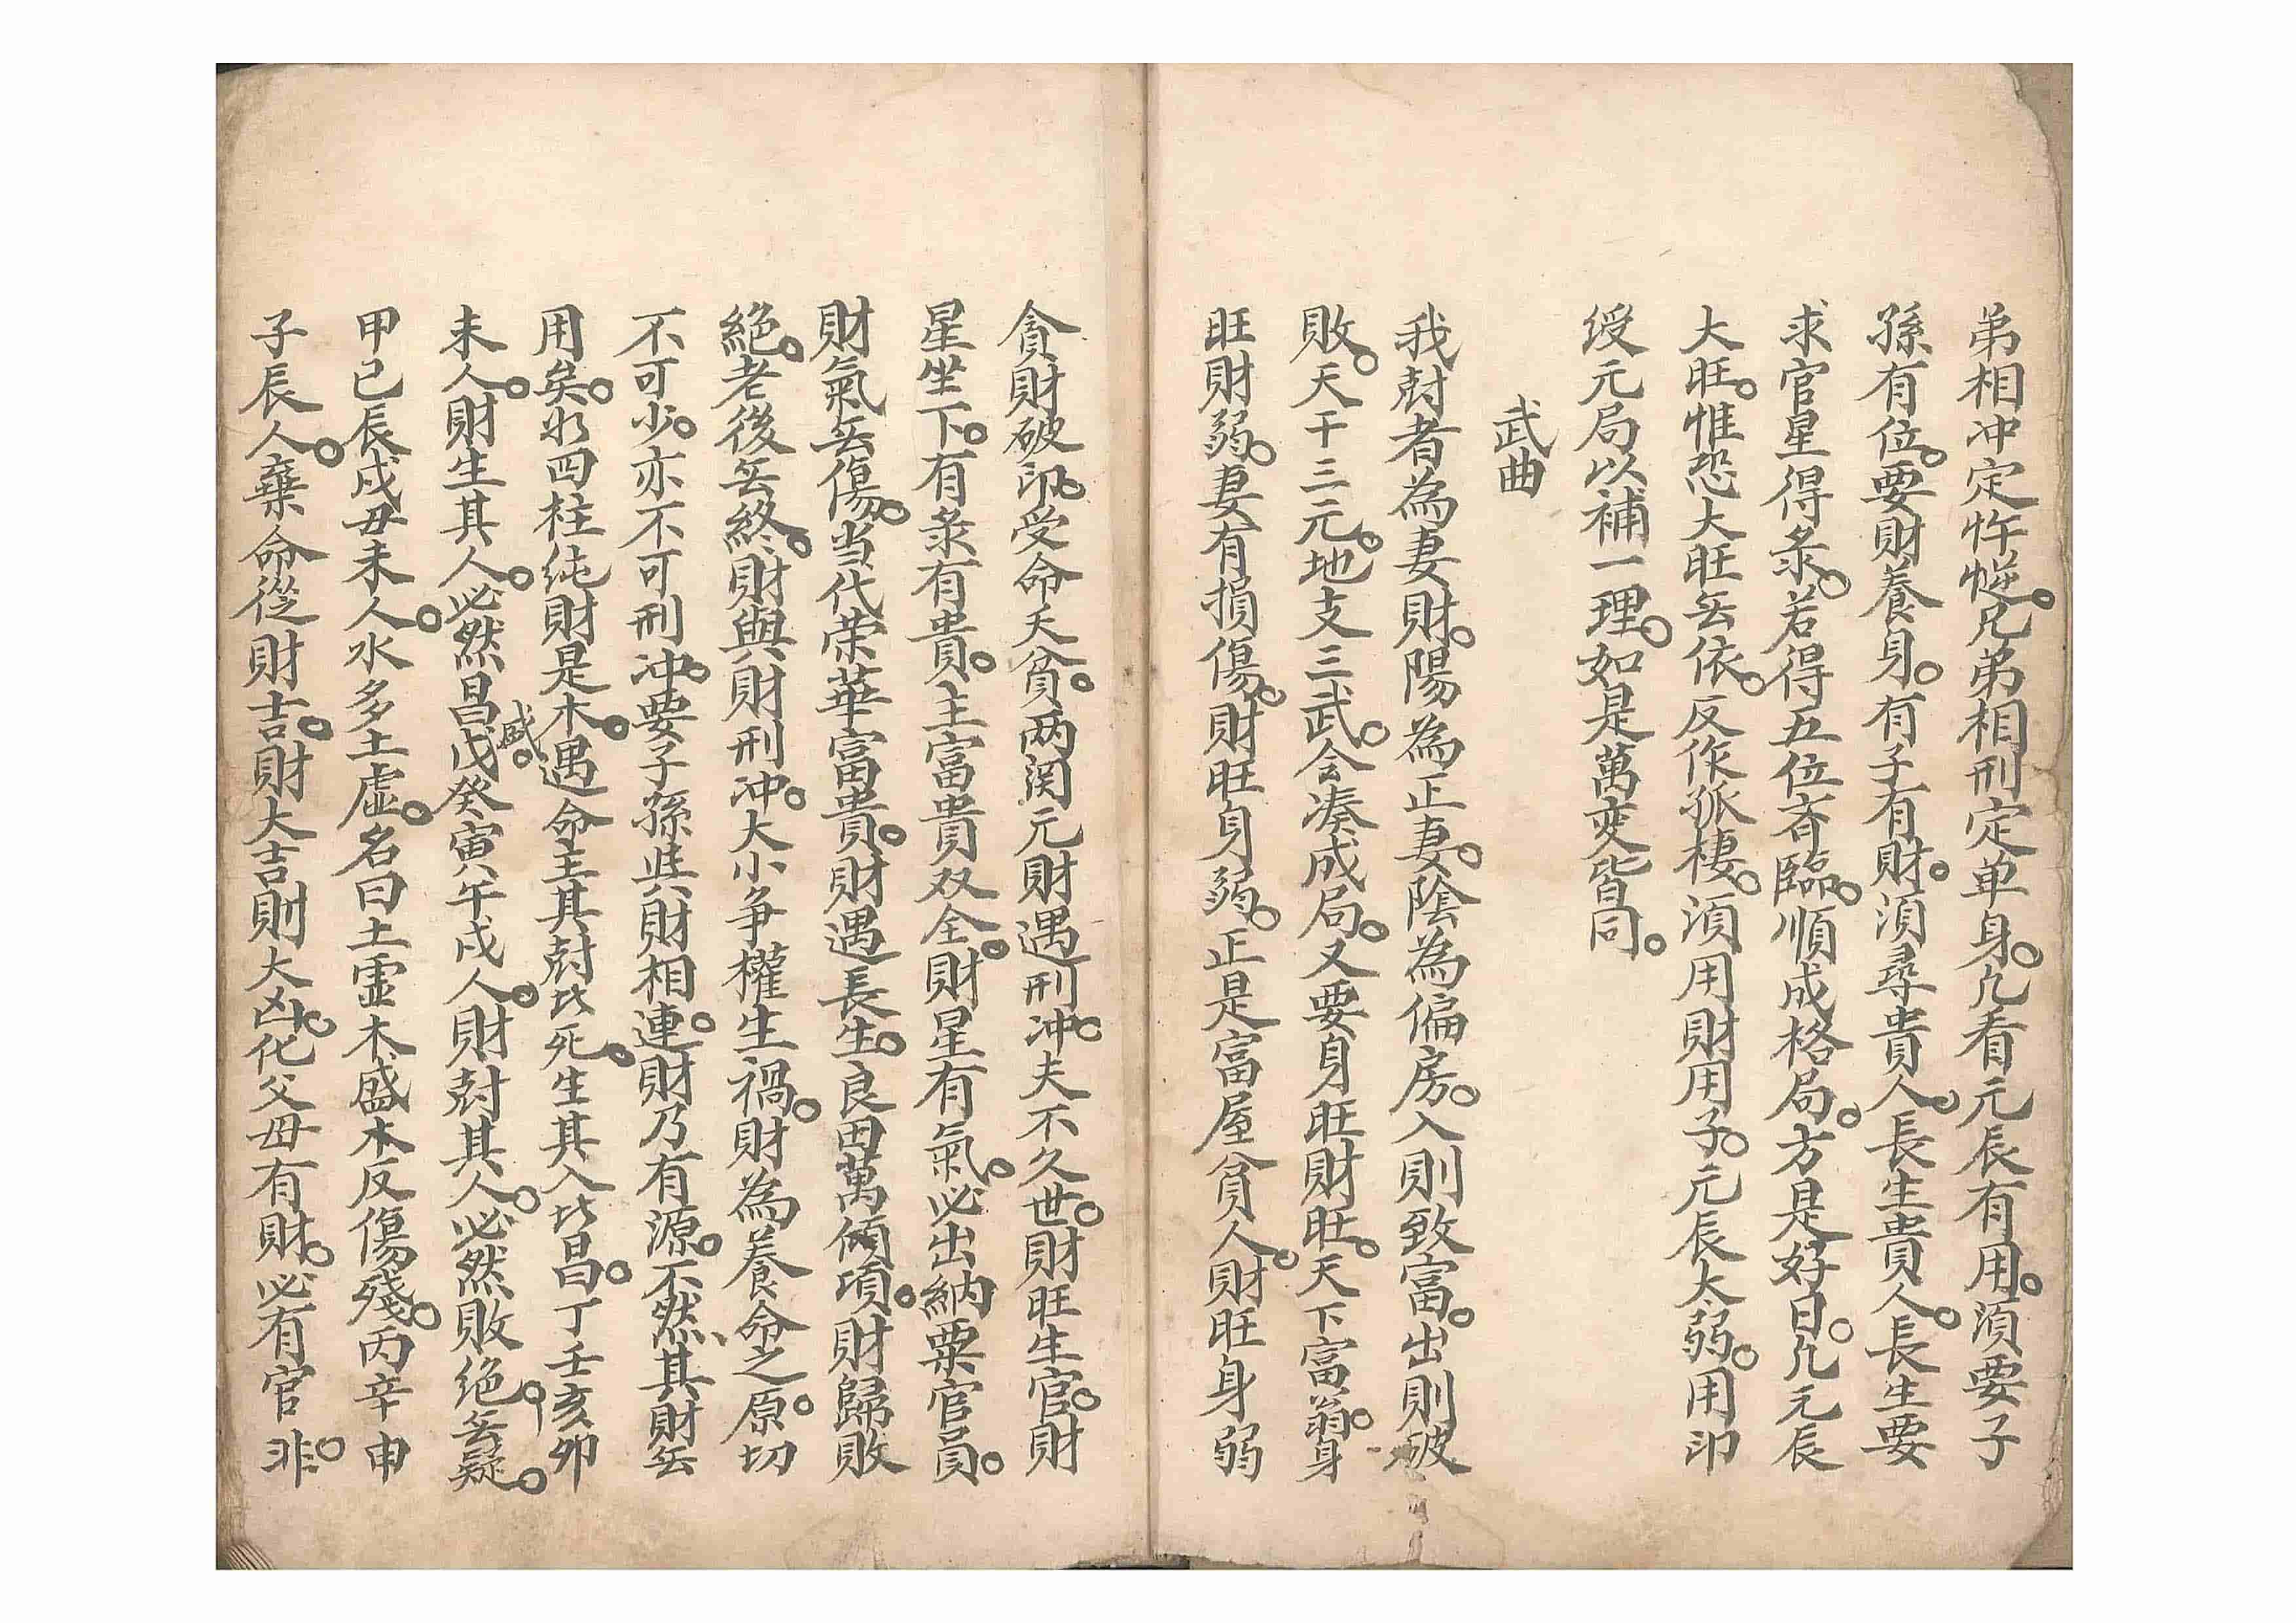 弟相冲定忤逆。兄弟相刑定单身。凡看元辰有用。須要子
孫有位。要財養身。有子有財。須尋貴人。長生貴人。長生要
求官星得彔。若得五位斉臨。順成格局。方是好日。凡元辰
大旺。惟恐大旺无依。反作孤棲。須用財用子。元辰太弱。用印
綬元局以補一理。如是萬变皆同。
武曲
我尅者為妻財。陽為正妻。陰為偏房。入則致富。出則破
敗。天干三元。地支三武。会凑成局。又要身旺財旺。天下富翁。身
旺財弱。妻有損傷。財旺身弱。正是富屋貧人。財旺身弱
貪財破印。受命夭貧。两関元財遇刑冲。夫不久世。財旺生官。財
星坐下。有彔有貴。主富貴双全。財星有氣。必出納粟官員。
財氣无傷。当代荣華富貴。財遇長生。良田萬傾項。財歸敗
絕。老後无終。財與財刑冲。大小争權生禍。財為養命之原。切
不可少。亦不可刑冲。要子孫與財相連。財乃有源。不然、其財无
用矣。如四柱纯財是木。遇命主其尅比死。生其入比昌。丁壬亥卯
未人。財生其人。必然昌盛。戊癸寅午戌人。財尅其人。必然敗絶无疑。
甲己辰戌丑未人。水多土虛。名曰土虚木盛木反傷殘。丙辛申
子辰人。棄命從財吉。財大吉則大凶。化父母有財。必有官非。